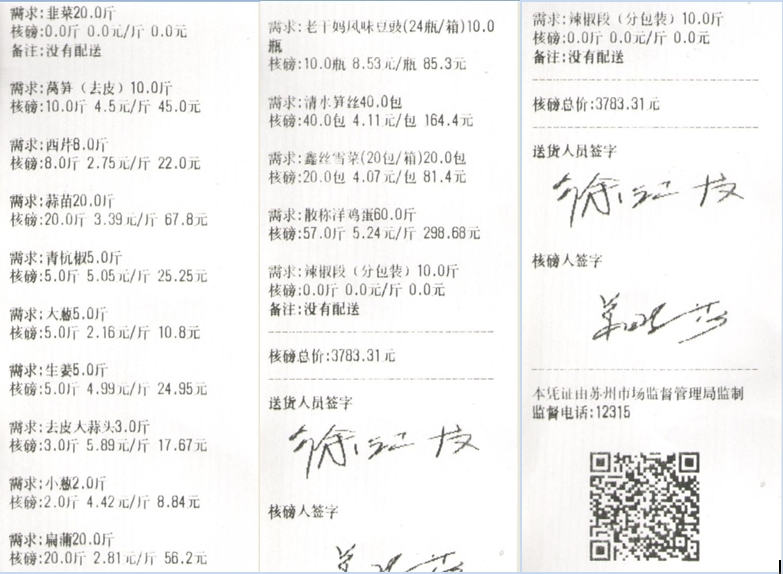 需求:韭菜20.0斤
核磅:0.0斤 0.0元/斤 0.0元
备注:没有配送
需求:莴笋（去皮）10.0斤
核磅:10.0斤 4.5元/斤 45.0元
需求:西芹8.0斤
核磅:8.0斤 2.75元/斤 22.0元
需求:蒜苗20.0斤
核磅:20.0斤 3.39元/斤 67.8元
需求:青杭椒5.0斤
核磅:5.0斤 5.05元/斤 25.25元
需求:大葱5.0斤
核磅:5.0斤 2.16元/斤 10.8元
需求:生姜5.0斤
核磅:5.0斤 4.99元/斤 24.95元
需求:去皮大蒜头3.0斤
核磅:3.0斤 5.89元/斤 17.67元
需求:小葱2.0斤
核磅:2.0斤 4.42元/斤 8.84元
需求:扁蒲20.0斤
核磅:20.0斤 2.81元/斤 56.2元
需求:老干妈风味豆豉(24瓶/箱)10.0
瓶
核磅:10.0瓶 8.53元/瓶 85.3元
需求:清水笋丝40.0包
核磅:40.0包 4.11元/包 164.4元
需求:鑫丝雪菜(20包/箱)20.0包
核磅:20.0包 4.07元/包 81.4元
需求:散称洋鸡蛋60.0斤
核磅:57.0斤 5.24元/斤 298.68元
需求:辣椒段（分包装）10.0斤
核磅:0.0斤 0.0元/斤 0.0元
备注:没有配送
核磅总价:3783.31元
送货人员签字
核磅人签字
需求:辣椒段（分包装）10.0斤
核磅:0.0斤 0.0元/斤 0.0元
备注:没有配送
核磅总价:3783.31元
送货人员签字
核磅人签字
本凭证由苏州市场监督管理局监制
监督电话:12315